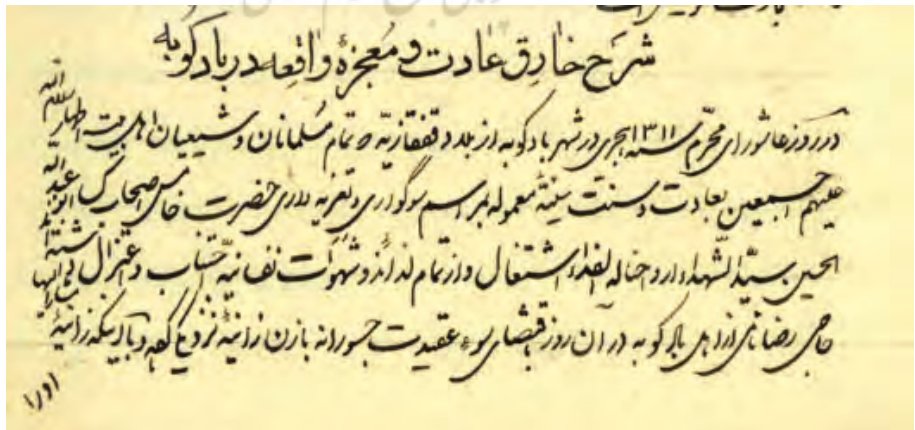 شرح خارق عادت و معجزهٔ واقعه در بادکوبه
در روز عاشورای محرّم سنه ۱۳۱۱ هجری در شهر بادکوبه از بلاد قفقازیّه که تمام مسلمانان و شیعیان اهل بیت اطهار سلام الله
علیهم اجمعین بعادت و سنت سنیّهٔ معموله بمراسم سوگواری و تعزیه داری حضرت خامس اصحاب کسا ابو عبد الله
الحسین سیّد الشهداء ارواحنا له الفداء اشتغال و از تمام لذائذ و شهوات نفسانیّه اجتناب و اعتزال داشتند
حاجی رضا نامی از اهالی بادکوبه در آن روز باقتضای سوء عقیدت جسورانه با زن زانیهٔ نزدیکی کرده و با اینکه زانیهٔ
او را